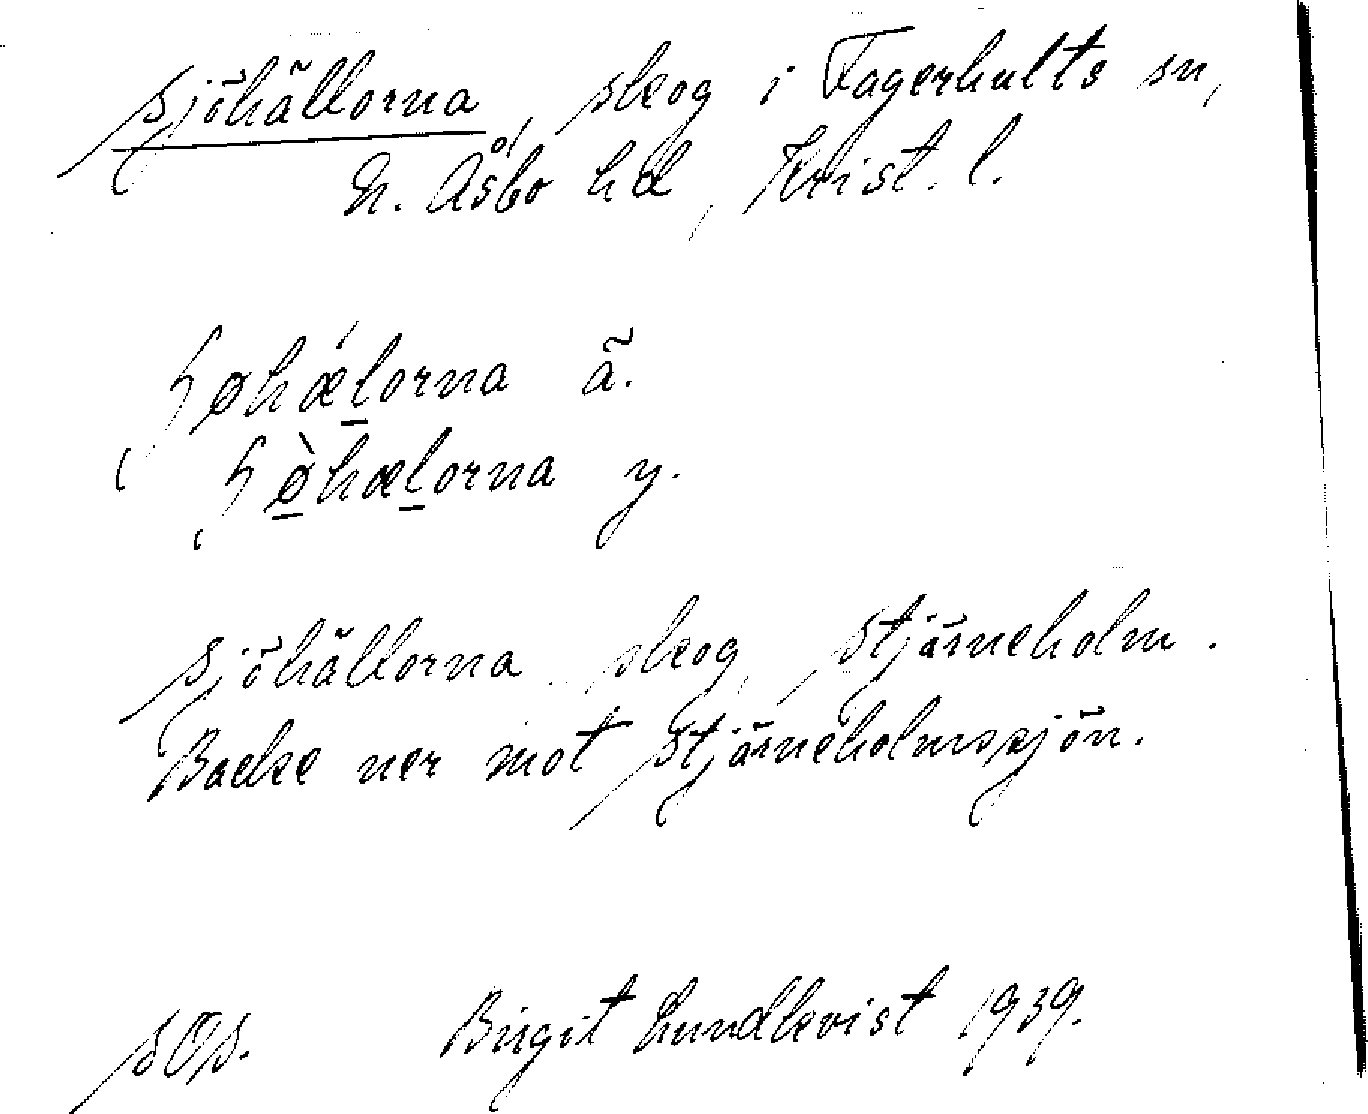 Sjöhällorna, skog i Fagerhults sn,
N. Åsbo hd, Krist. l.
ʃøhǽlorna ä.
ʃø̀hælorna y.
Sjöhällorna skog, Stjärneholm.
Backe ner mot Stjärneholmssjön.
SOS. Birgit Lundkvist 1939.